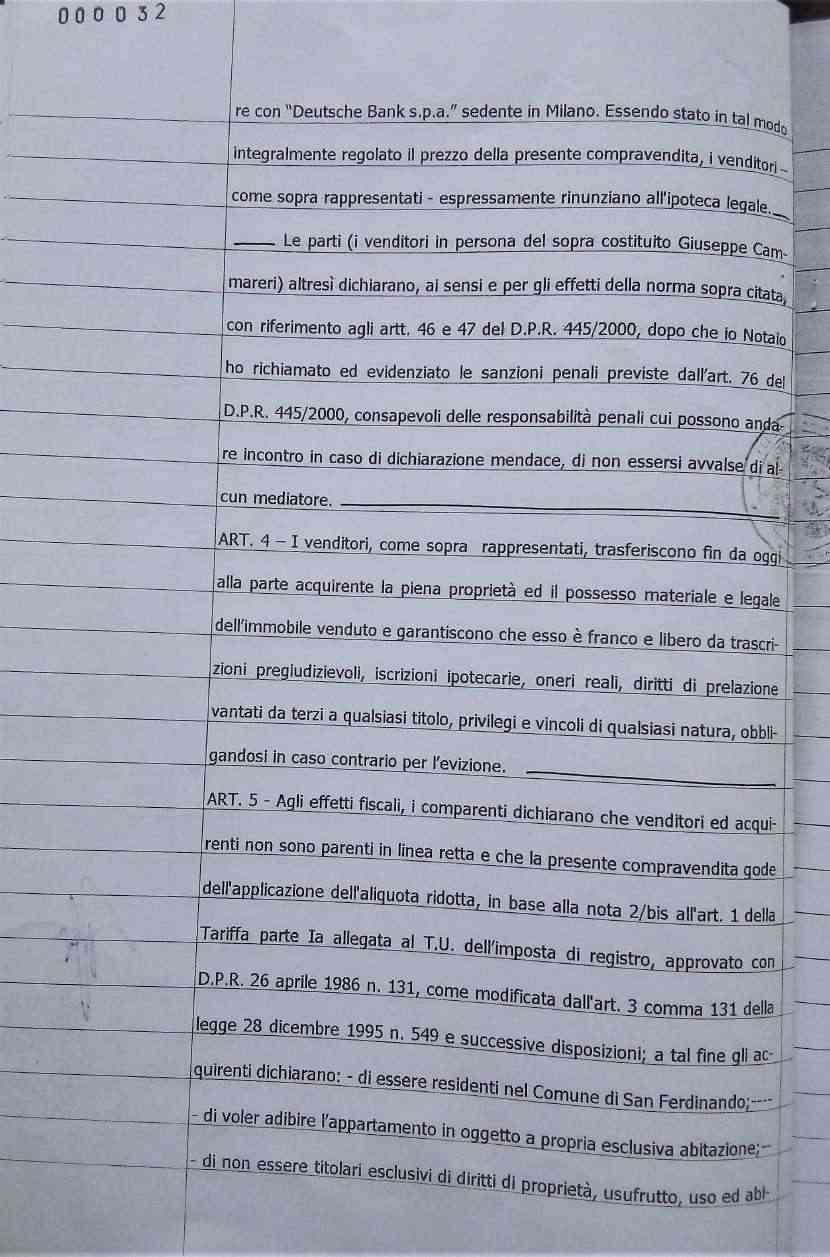 000032
re con "Deutsche Bank s.p.a." sedente in Milano. Essendo stato in tal modo
integralmente regolato il prezzo della presente compravendita, i venditori -
come sopra rappresentati - espressamente rinunziano all'ipoteca legale.
Le parti (i venditori in persona del sopra costituito Giuseppe Cam-
mareri) altresì dichiarano, ai sensi e per gli effetti della norma sopra citata,
con riferimento agli artt. 46 e 47 del D.P.R. 445/2000, dopo che io Notaio
ho richiamato ed evidenziato le sanzioni penali previste dall'art. 76 del
D.P.R. 445/2000, consapevoli delle responsabilità penali cui possono anda-
re incontro in caso di dichiarazione mendace, di non essersi avvalse di al-
cun mediatore.
ART. 4 – I venditori, come sopra rappresentati, trasferiscono fin da oggi
alla parte acquirente la piena proprietà ed il possesso materiale e legale
dell'immobile venduto e garantiscono che esso è franco e libero da trascri-
zioni pregiudizievoli, iscrizioni ipotecarie, oneri reali, diritti di prelazione
vantati da terzi a qualsiasi titolo, privilegi e vincoli di qualsiasi natura, obbli-
gandosi in caso contrario per l'evizione.
ART. 5 - Agli effetti fiscali, i comparenti dichiarano che venditori ed acqui-
renti non sono parenti in linea retta e che la presente compravendita gode
dell'applicazione dell'aliquota ridotta, in base alla nota 2/bis all'art. 1 della
Tariffa parte Ia allegata al T.U. dell'imposta di registro, approvato con
D.P.R. 26 aprile 1986 n. 131, come modificata dall'art. 3 comma 131 della
legge 28 dicembre 1995 n. 549 e successive disposizioni; a tal fine gli ac-
quirenti dichiarano: - di essere residenti nel Comune di San Ferdinando;----
- di voler adibire l'appartamento in oggetto a propria esclusiva abitazione;--
- di non essere titolari esclusivi di diritti di proprietà, usufrutto, uso ed abi-